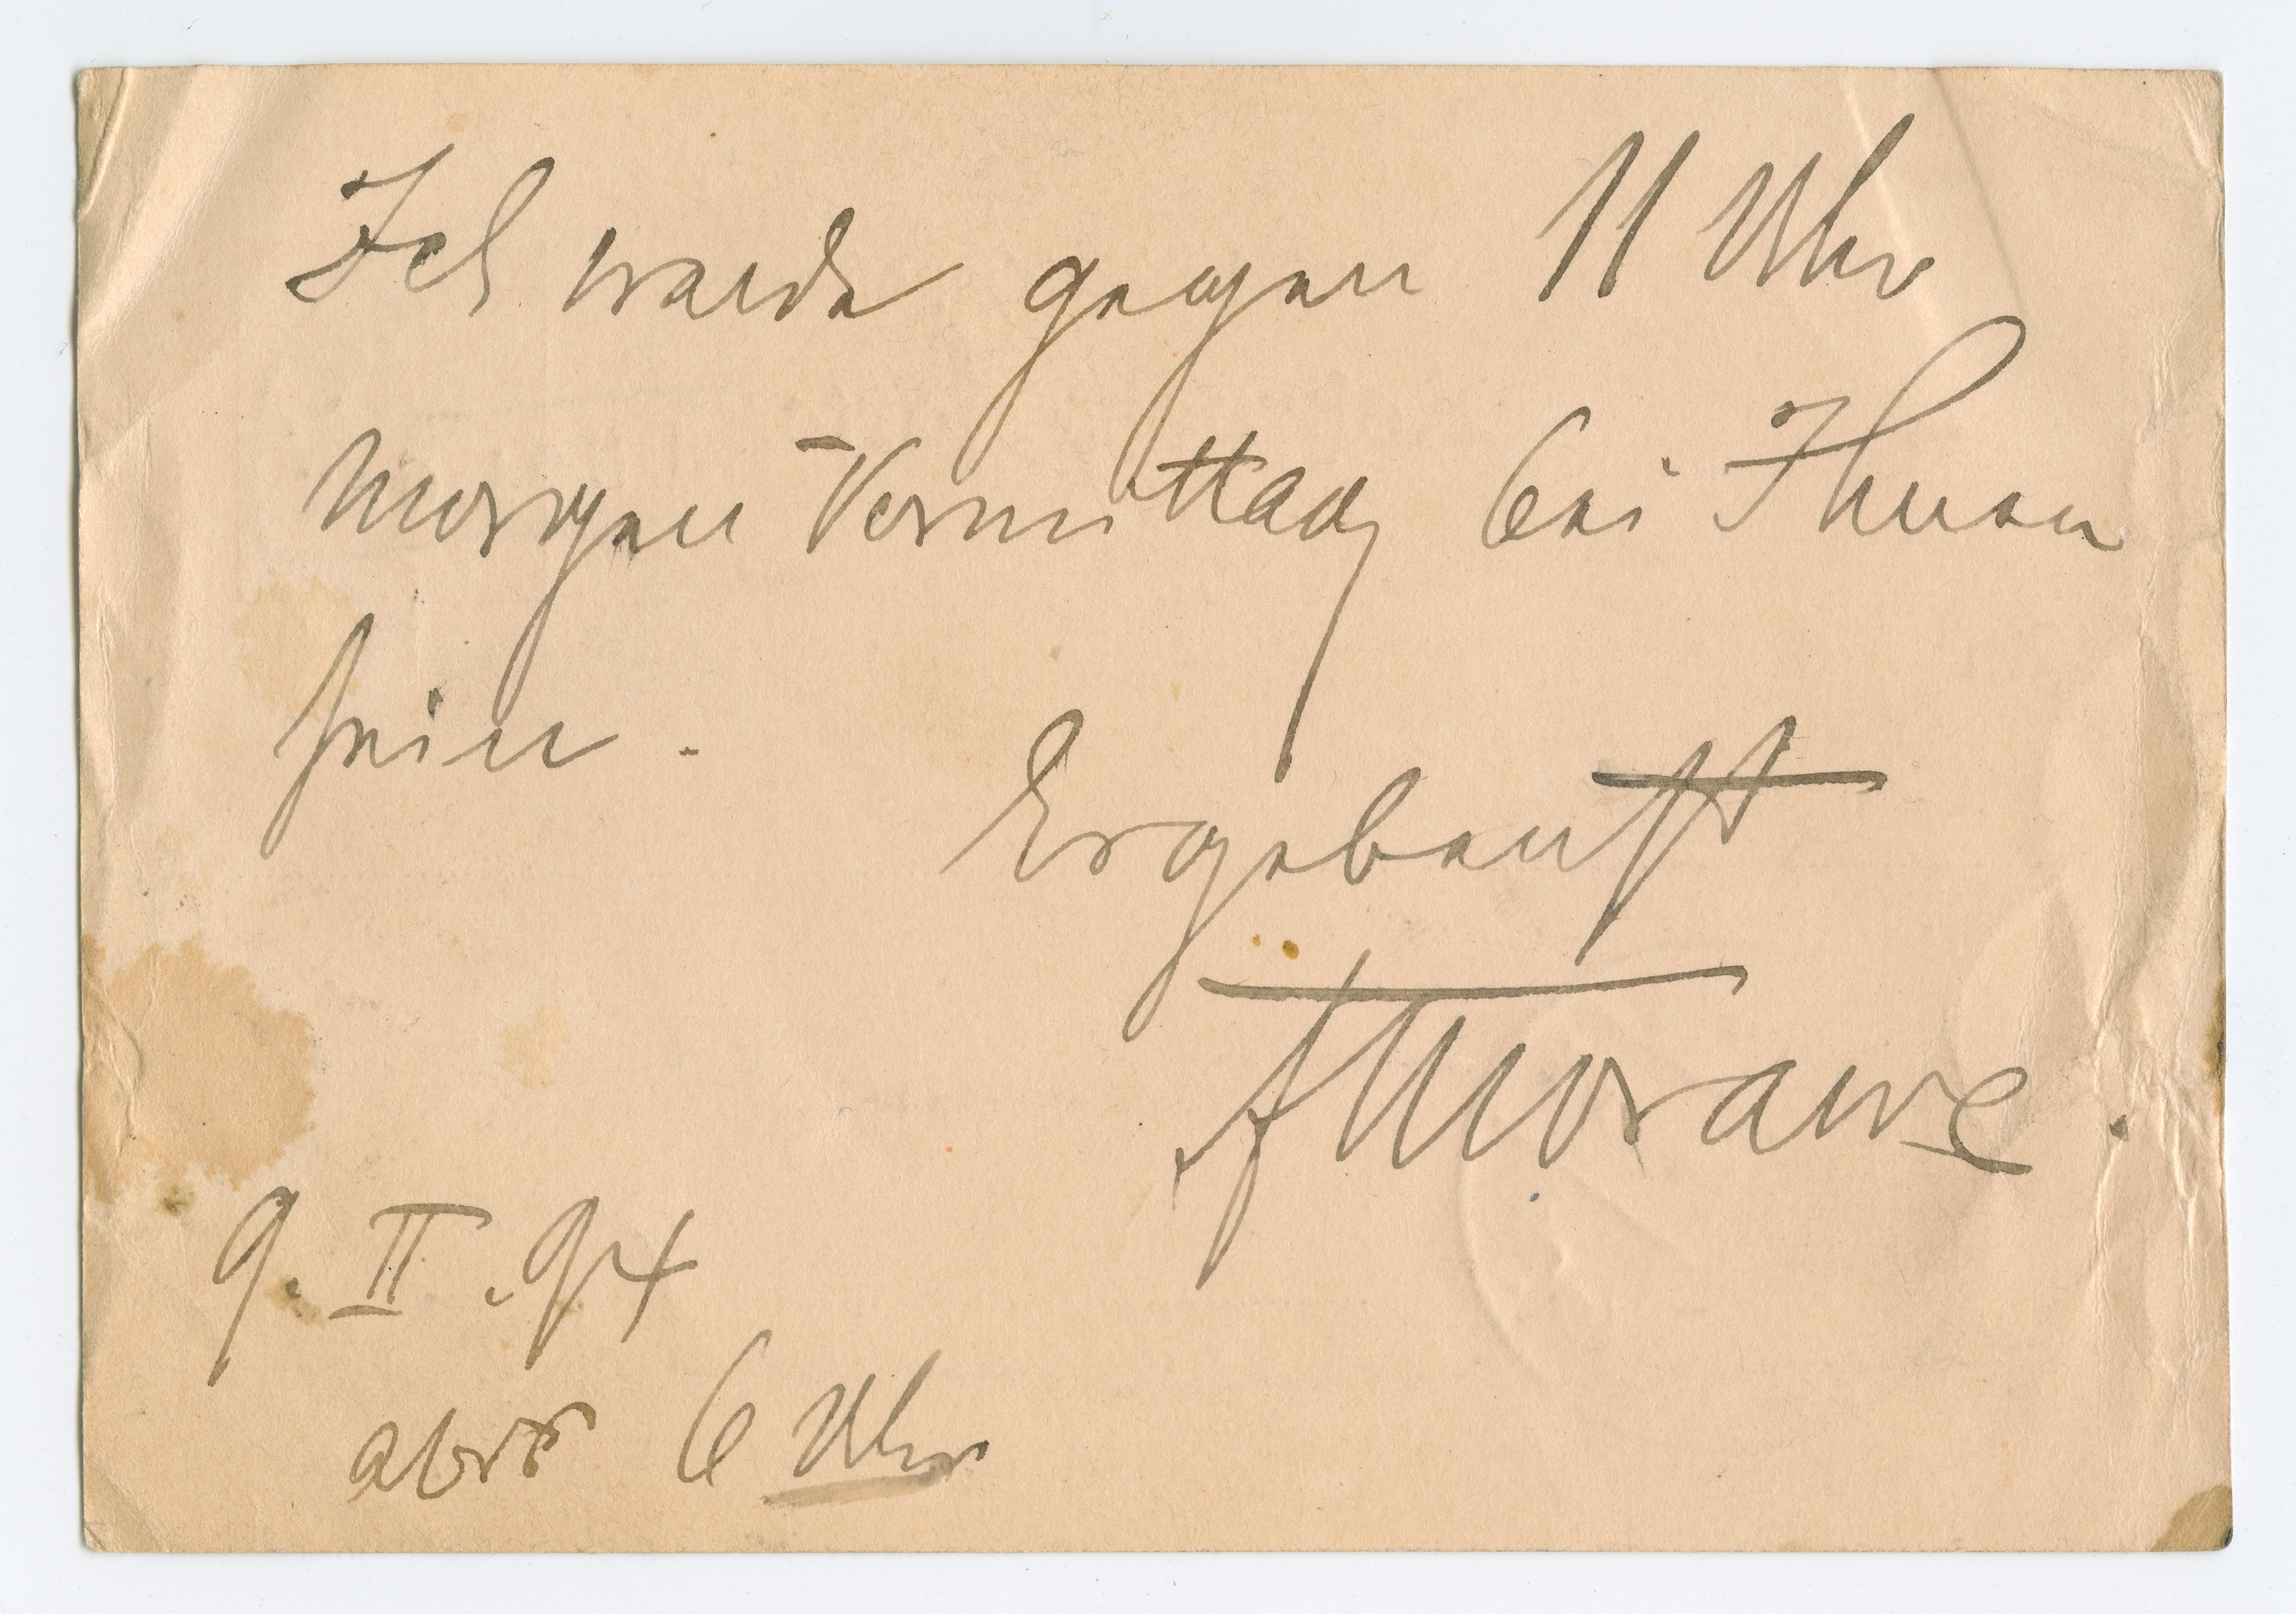 Ich werde gegen 11 Uhr
morgen Vormittag bei Ihnen
sein.
Ergebenst
FMorawe.
9. II. 94
6 Uhr